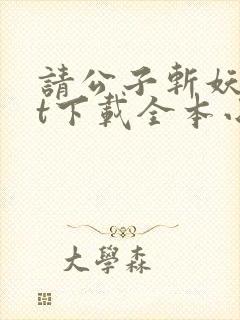 請公子斬妖
t下載全本
大學森